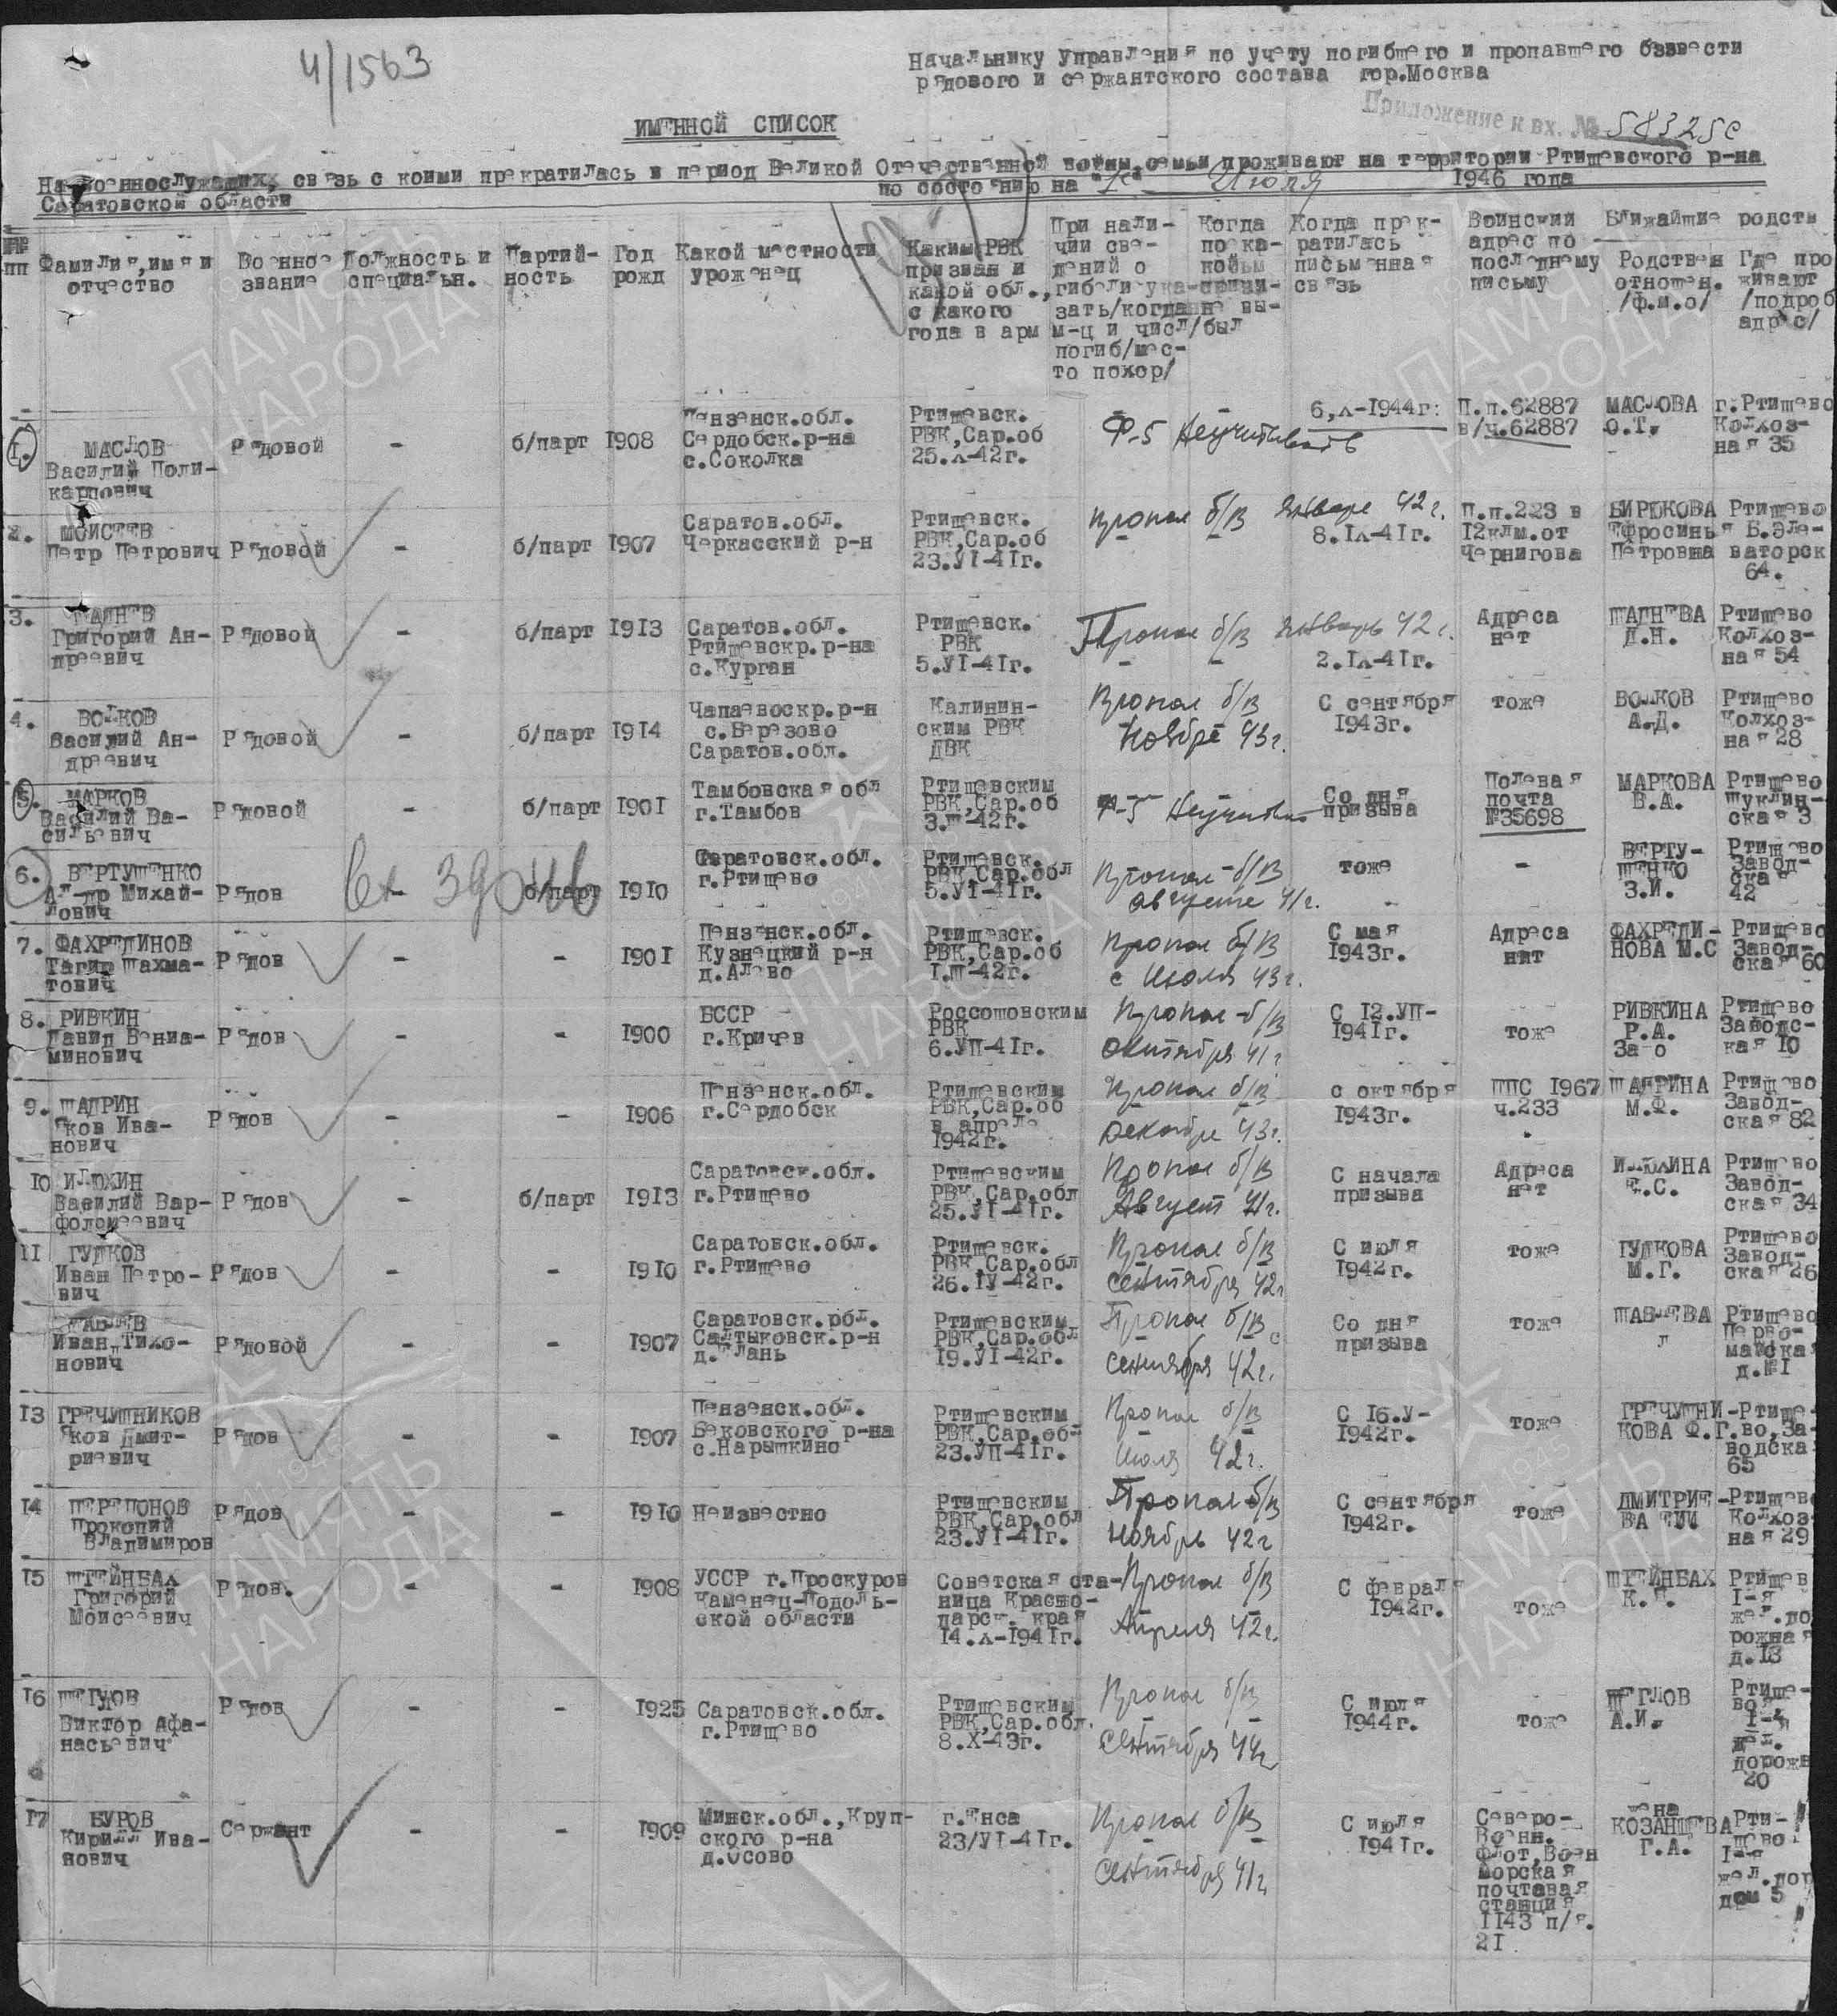 4/1563
Начальнику Управления по учету погибшего и пропавшего бзвести
рядового и сержантского состава гор.Москва
Приложение к вх. № 58325с
ИМЕННОЙ СПИСОК
На военнослужащих, связь с коими прекратилась в период Великой Отечественной войны, семьи проживают на территории Ртищевского р-на
Саратовской области
по состоянию на
Июля
1946 года
№№ пп
Фамилия,имя и отчество
Военное звание
Должность и специальн.
Партий-ность
Год рожд
Какой местности уроженец
Каким РВК призван и какой обл., с какого года в арм
При нали-чии све-дений о гибели ука-зать/когда м-ц и числ/ погиб/мес-то похор/
Когда
Когда прек-ратилась письменная связь
Воинский адрес по последнему письму
Ближайшие родств
Родствен отношен. /ф.и.о/
Где про живают /подроб адрес/
1. МАСЛОВ Василий Поли-карпович Рядовой - б/парт 1908 Пензенск.обл. Сердобск.р-на с.Соколка Ртищевск. РВК,Сар.об 25.X-42г. Ф-5 Неучитывать 6,X-1944г: П.п.62887 в/ч.62887 МАСЛОВА О.Т. г.Ртищево Колхоз-ная 35
2. МОИСЕЕВ Петр Петрович Рядовой - б/парт 1907 Саратов.обл. Черкасский р-н Ртищевск. РВК,Сар.об 23.УI-41г. пропал б/в январе 42г. 8.IX-41г. П.п.223 в 12клм.от Чернигова БИРЮКОВА Ефросинья Петровна Ртищево Б.Эле-ваторск 64.
3. Григорий Ан-дреевич Рядовой - б/парт 1913 Саратов.обл. Ртищевскр.р-на с.Курган Ртищевск. РВК 5.УI-41г. Пропал б/в январь 42г. 2.IX-41г. Адреса нет Д.Н. Ртищево Колхоз-ная 54
4. ВОЛКОВ Василий Ан-дреевич Рядовой - б/парт 1914 Чапаевоскр.р-н с.Березово Саратов.обл. Калинин-ским РВК ДВК Пропал б/в ноябре 43г. С сентября 1943г. тоже ВОЛКОВ А.Д. Ртищево Колхоз-ная 28
5. МАРКОВ Василий Ва-сильевич Рядовой - б/парт 1901 Тамбовская обл г.Тамбов Ртищевским РВК,Сар.об 3.Ш-42г. Ф-5 Неучитывать Со дня призыва Полевая почта №35698 МАРКОВА В.А. Ртищево Щуклин-ская 3
6. ВЕРТУШЕНКО Ал-др Михай-лович Рядов - б/парт 1910 Саратовск.обл. г.Ртищево Ртищевск. РВК,Сар.обл 5.УI-41г. Пропал б/в августе 41г. тоже - ВЕРТУ-ШЕНКО З.И. Ртищево Завод-ская 42
7. ФАХРЕДИНОВ Тагир Шахма-тович Рядов - - 1901 Пензенск.обл. Кузнецкий р-н д.Алево Ртищевск. РВК,Сар.об 1.Ш-42г. пропал б/в с июля 43г. С мая 1943г. Адреса нит ФАХРЕДИ-НОВА М.С Ртищево Завод-ская 60
8. РИВКИН Давид Вениа-минович Рядов - - 1900 БССР г.Кричев Россошовским РВК 6.УП-41г. Пропал б/в октября 41г С 12.УП-1941г. тоже РИВКИНА Р.А. Ртищево Заводс-кая 10
9. ШАДРИН Яков Ива-нович Рядов - - 1906 Пензенск.обл. г.Сердобск Ртищевским РВК,Сар.об в апреле 1942г. Пропал б/в декабре 43г. с октября 1943г. ППС 1967 ч.233 ШАДРИНА М.Ф. Ртищево Завод-ская 82
10 ИЛЮХИН Василий Вар-фоломеевич Рядов - б/парт 1913 Саратовск.обл. г.Ртищево Ртищевским РВК,Сар.обл 25.УI-41г. Пропал б/в Август 41г. С начала призыва Адреса нет ИЛЮХИНА Е.С. Ртищево Завод-ская 34
11 ГУДКОВ Иван Петро-вич Рядов - - 1910 Саратовск.обл. г.Ртищево Ртищевск. РВК,Сар.обл 26.IУ-42г. Пропал б/в сентября 42г С июля 1942г. тоже ГУДКОВА М.Г. Ртищево Завод-ская 26
Иван Тихо-нович Рядовой - - 1907 Саратовск.рбл. Салтыковск.р-н д.Елань Ртищевским РВК,Сар.обл 19.УI-42г. Пропал б/в с сентября 42г. Со дня призыва тоже Ртищево Перво-майская д.№1
13 ГРЕЧУШНИКОВ Яков Дмит-риевич Рядов - - 1907 Пензенск.обл. Бековского р-на с.Нарышкино Ртищевским РВК,Сар.об 23.УП-41г. Пропал б/в июля 42г. С 16.У-1942г. тоже ГРЕЧУШНИ-КОВА Ф.Г. Ртище-во,За-водска 65
14 ПЕРЕПОНОВ Прокопий Владимиров Рядов - - 1910 Неизвестно Ртищевским РВК,Сар.обл 23.УI-41г. Пропал б/в ноябрь 42г С сентября 1942г. тоже ДМИТРИЕ-ВА Ртищево Колхоз-ная 29
15 ШТЕЙНБАХ Григорий Моисеевич Рядов. - - 1908 УССР г.Проскуров Каменец-Подоль-ской области Советская ста-ница Красно-дарск. края 14.X-1941г. Пропал б/в Апреля 42г. С февраля 1942г. тоже ШТЕЙНБАХ Ртищев 1-я жел.до рожная д.13
16 ЩЕГЛОВ Виктор Афа-насьевич Рядов - - 1925 Саратовской.обл. г.Ртищево Ртищевским РВК,Сар.обл. 8.X-43г. Пропал б/в Сентября 44г С июля 1944г. тоже ЩЕГЛОВ А.И. Ртище-во 1-я жел. дорожн 20
17 БУРОВ Кирилл Ива-нович Сержант - - 1909 Минск.обл.,Круп-ского р-на д.Осово г.Енса 23/УI-41г. Пропал б/в сентября 41г С июля 1941г. Северо-Военн. Флот,Воен Морская почтовая станция 1143 п/я. 21 жена КОЗАНЦЕВА Г.А. Рти-щево 1-я жел.дор дом 5
ПАМЯТЬ НАРОДА